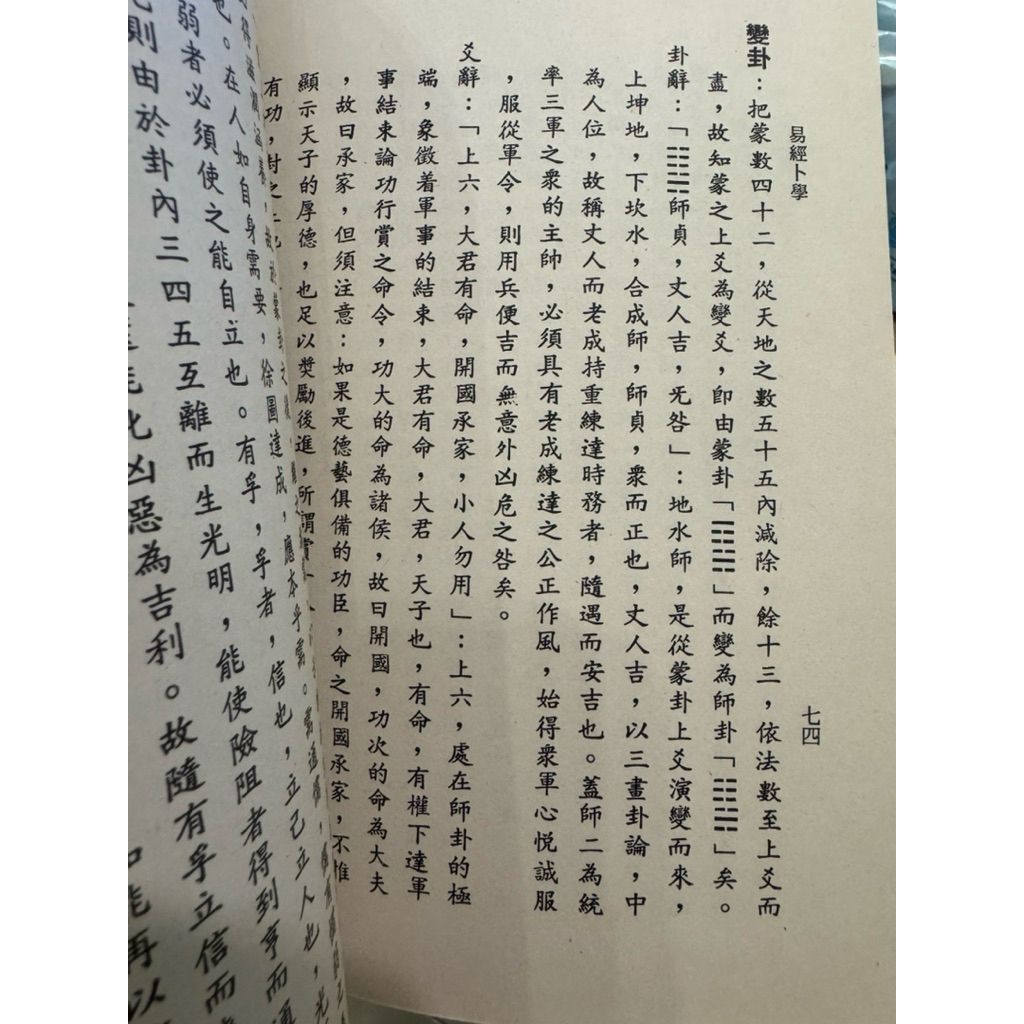 易經卜學
七四
變卦：把蒙數四十二，從天地之數五十五內減除，餘十三，依法數至上爻而
盡，故知蒙之上爻為變爻，卽由蒙卦「䷃」而變為師卦「䷆」矣。
卦辭：「䷆師貞，丈人吉，旡咎」：地水師，是從蒙卦上爻演變而來，
上坤地，下坎水，合成師，師貞，衆而正也，丈人吉，以三畫卦論，中
為人位，故稱丈人而老成持重練達時務者，隨遇而安吉也。蓋師二為統
率三軍之衆的主帥，必須具有老成練達之公正作風，始得衆軍心悅誠服
，服從軍令，則用兵便吉而無意外凶危之咎矣。
爻辭：「上六，大君有命，開國承家，小人勿用」：上六，處在師卦的極
端，象徵着軍事的結束，大君有命，大君，天子也，有命，有權下達軍
事結束論功行賞之命令，功大的命為諸侯，故曰開國，功次的命為大夫
，故曰承家，但須注意：如果是德藝俱備的功臣，命之開國承家，不惟
顯示天子的厚德，也足以獎勵後進，所謂賞
有功，封之
，徐圖達成，應本乎需。
也。在人如自身需要
弱者必須使之能自立也。有孚，孚者，信也，立己立人也，光
則由於卦內三四五互離而生光明，能使險阻者得到亨而通
化凶惡為吉利。故隨有孚立信而
能再以